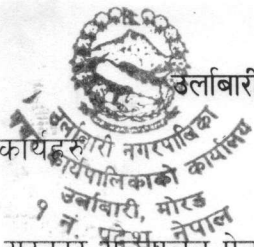 उर्लाबारी
कार्यहरु
उर्लाबारी नगरपालिका
नगर कार्यपालिकाको कार्यालय
उर्लाबारी, मोरङ
१ नं. प्रदेश, नेपाल